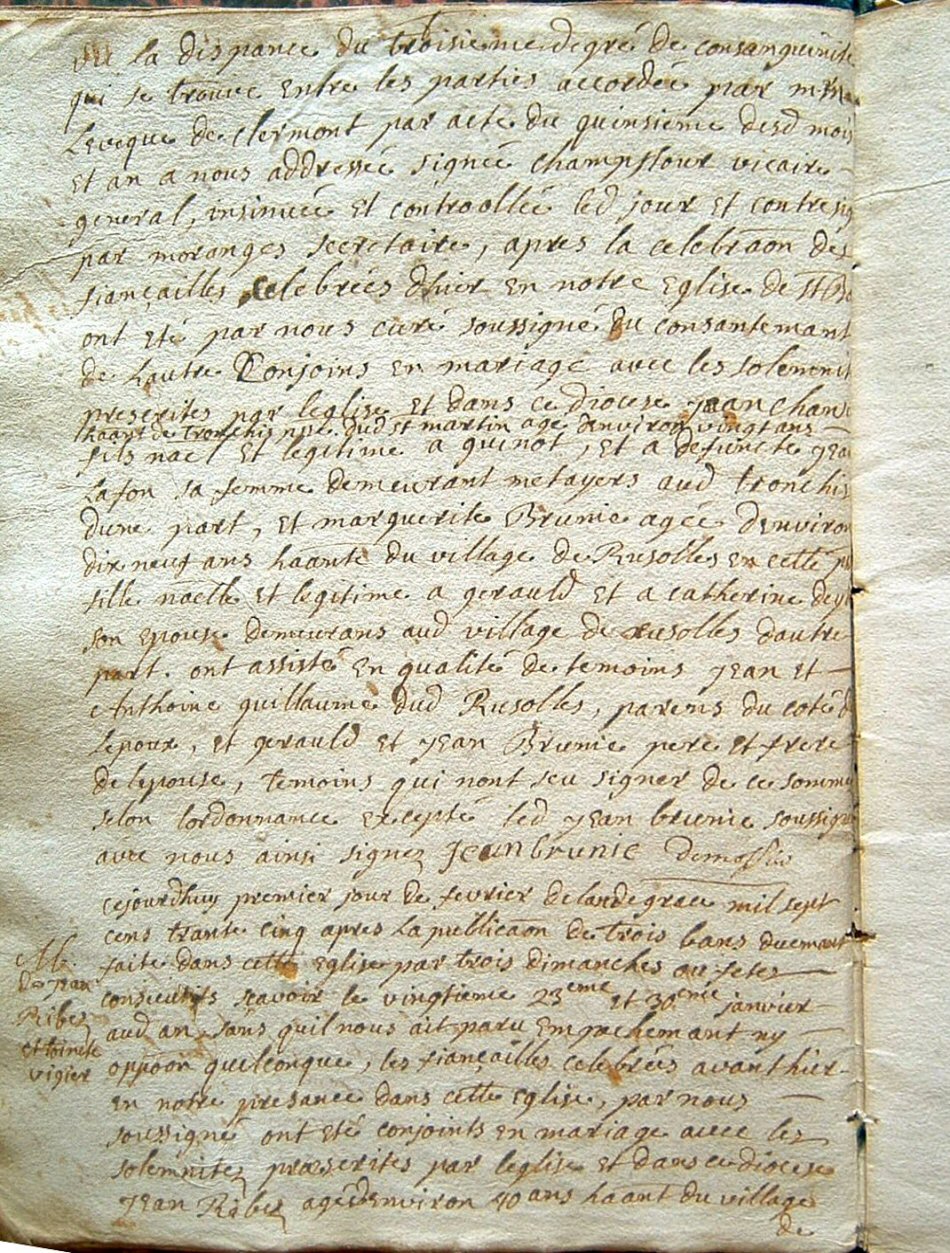 vu la dispance du troisieme degré de consanguinité
qui se trouve entre les parties accordée par
Leveque de Clermont par acte du quinsieme desd mois
et an a nous addressée signée Champflour vicaire
general, insinuée et controollée led jour et contresig
par moranges secretaire, apres la celebraon des
fiançailles celebrées dhier en notre Eglise de St
ont eté par nous curé soussigné du consantemant
de lautre Conjoins en mariage avec les solemnit
prescrites par leglise et dans ce Diocese jean
haant de tronchis dud st martin age denviron vingt ans
fils nael et legitime a guinot, et a defuncte jean
Lafon sa femme demeurant metayers aud tronchis
dune part, et marguerite Brunie agée denviron
dix neuf ans haante du village de Rusolles en cette
fille naelle et legitime a gerauld et a catherine
son epouse demeurans aud village de rusolles dautre
part. ont assisté en qualité de temoins jean et
Anthoine guillaume dud Rusolles, parens du coté d
lepoux, et gerauld et jean Brunie pere et frere
de lepouse, temoins qui nont seu signer de ce somme
selon lordonnance excepté led jean brunie soussigné
avec nous ainsi signez Jeanbrunie
cejourdhuy premier jour de fevrier de lan de grace mil sept
cens trante cinq apres la publicaon de trois bans duemant
faite dans cette Eglise par trois dimanches ou fetes
consecutifs scavoir le vingtieme 23eme et 30eme janvier
aud an sans quil nous ait paru empachemant ny
oppoon quelconque, les fiançailles celebrées avant hier
en notre presance dans cette Eglise, par nous
soussigné ont eté conjoints en mariage avec les
solemnitez præscrites par leglise et dans ce diocese
jean Ribez agé denviron 40 ans haant du village
de
M.
De jean
Ribez
et toinete
vigier